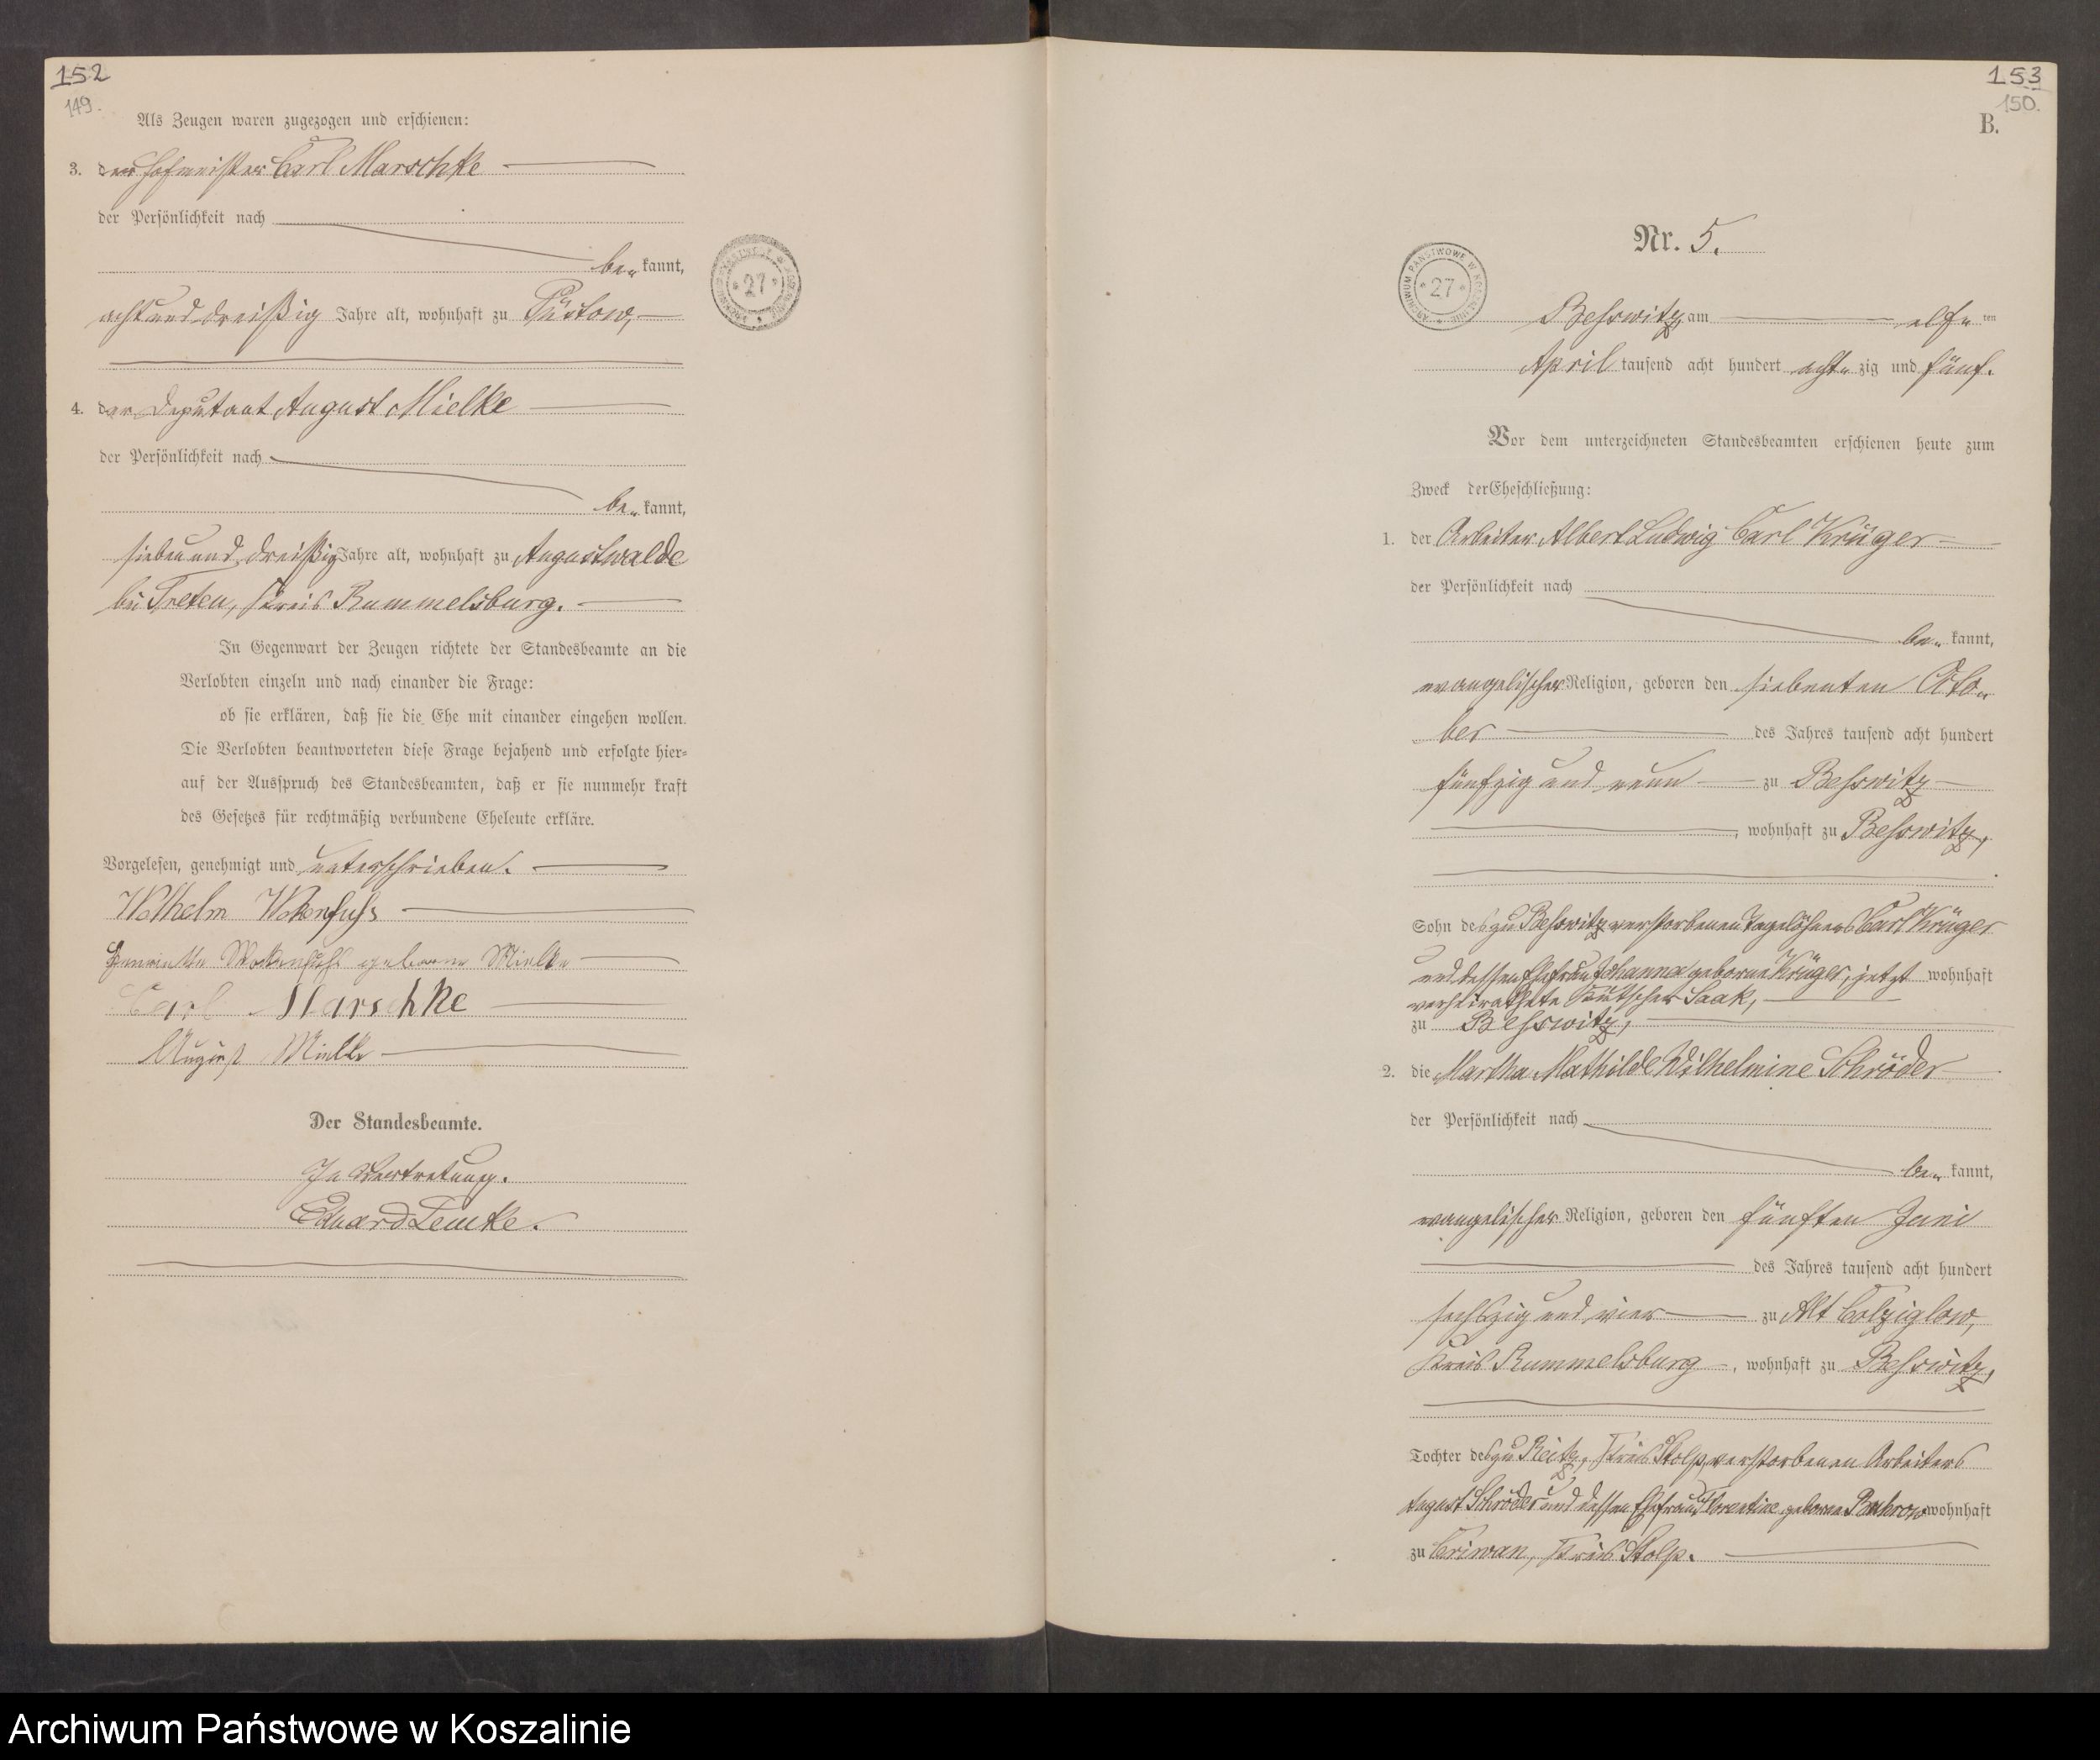 152
149.
Als Zeugen waren zugezogen und erschienen:
3. der Hofmeister Carl Marschke
der Persönlichkeit nach
be„ kannt,
acht und dreißig Jahre alt, wohnhaft zu Püstow,
4. der Deputant August Mielke
der Persönlichkeit nach
be„ kannt,
sieben und dreißig Jahre alt, wohnhaft zu Augustwalde
bei Treten, Kreis Rummelsburg.
In Gegenwart der Zeugen richtete der Standesbeamte an die
Verlobten einzeln und nach einander die Frage:
ob sie erklären, daß sie die Ehe mit einander eingehen wollen.
Die Verlobten beantworteten diese Frage bejahend und erfolgte hier=
auf der Ausspruch des Standesbeamten, daß er sie nunmehr kraft
des Gesetzes für rechtmäßig verbundene Eheleute erkläre.
Vorgelesen, genehmigt und unterschrieben.
Wilhelm Wokenfuhs
Wokenfuhs geborne Mielke
Carl Marschke
August Mielke
Der Standesbeamte.
In Vertretung.
Eduard Lemke.
ARCHIWUM PAŃSTWOWE W KOSZALINIE * 27 *
153
150.
B.
Nr. 5.
ARCHIWUM PAŃSTWOWE W KOSZALINIE * 27 *
Beßwitz am elf„ ten
April tausend acht hundert acht„ zig und fünf.
Vor dem unterzeichneten Standesbeamten erschienen heute zum
Zweck der Eheschließung:
1. der Arbeiter Albert Ludwig Carl Krüger
der Persönlichkeit nach
be„ kannt,
evangelischer Religion, geboren den siebenten Okto„
ber des Jahres tausend acht hundert
fünfzig und neun zu Beßwitz
, wohnhaft zu Beßwitz,
Sohn des zu Beßwitz verstorbenen Tagelöhners Carl Krüger
und dessen Ehefrau Johanna geborne Krüger, jetzt wohnhaft
verheirathete Kutscher Saak,
zu Beßwitz,
2. die Martha Mathilde Wilhelmine Schröder
der Persönlichkeit nach
be„ kannt,
evangelischer Religion, geboren den fünften Juni
des Jahres tausend acht hundert
sechszig und vier zu Alt Colziglow,
Kreis Rummelsburg, wohnhaft zu Beßwitz,
Tochter des zu Reitz, Kreis Stolp, verstorbenen Arbeiters
August Schröder und dessen Ehefrau Florentine geborne wohnhaft
zu Criwan, Kreis Stolp.
Archiwum Państwowe w Koszalinie